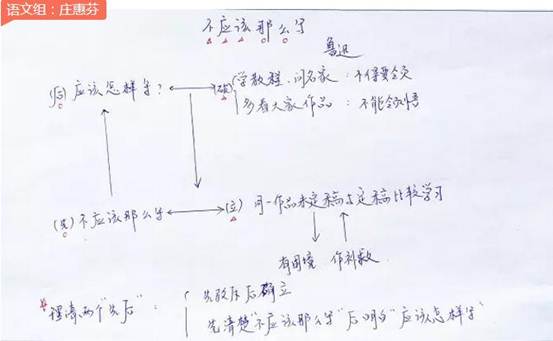 语文组:庄惠芬
不应该那么写
鲁迅
(后)应该怎样写?
(破) 学教程、问名家:不得要领
多看大家作品:不能领悟
(先)不应该那么写
(立) 同一作品未定稿与定稿比较学习
有困境 作补救
*理清两个"先后":
先破后确立
先清楚"不应该那么写"后明白"应该怎样写"